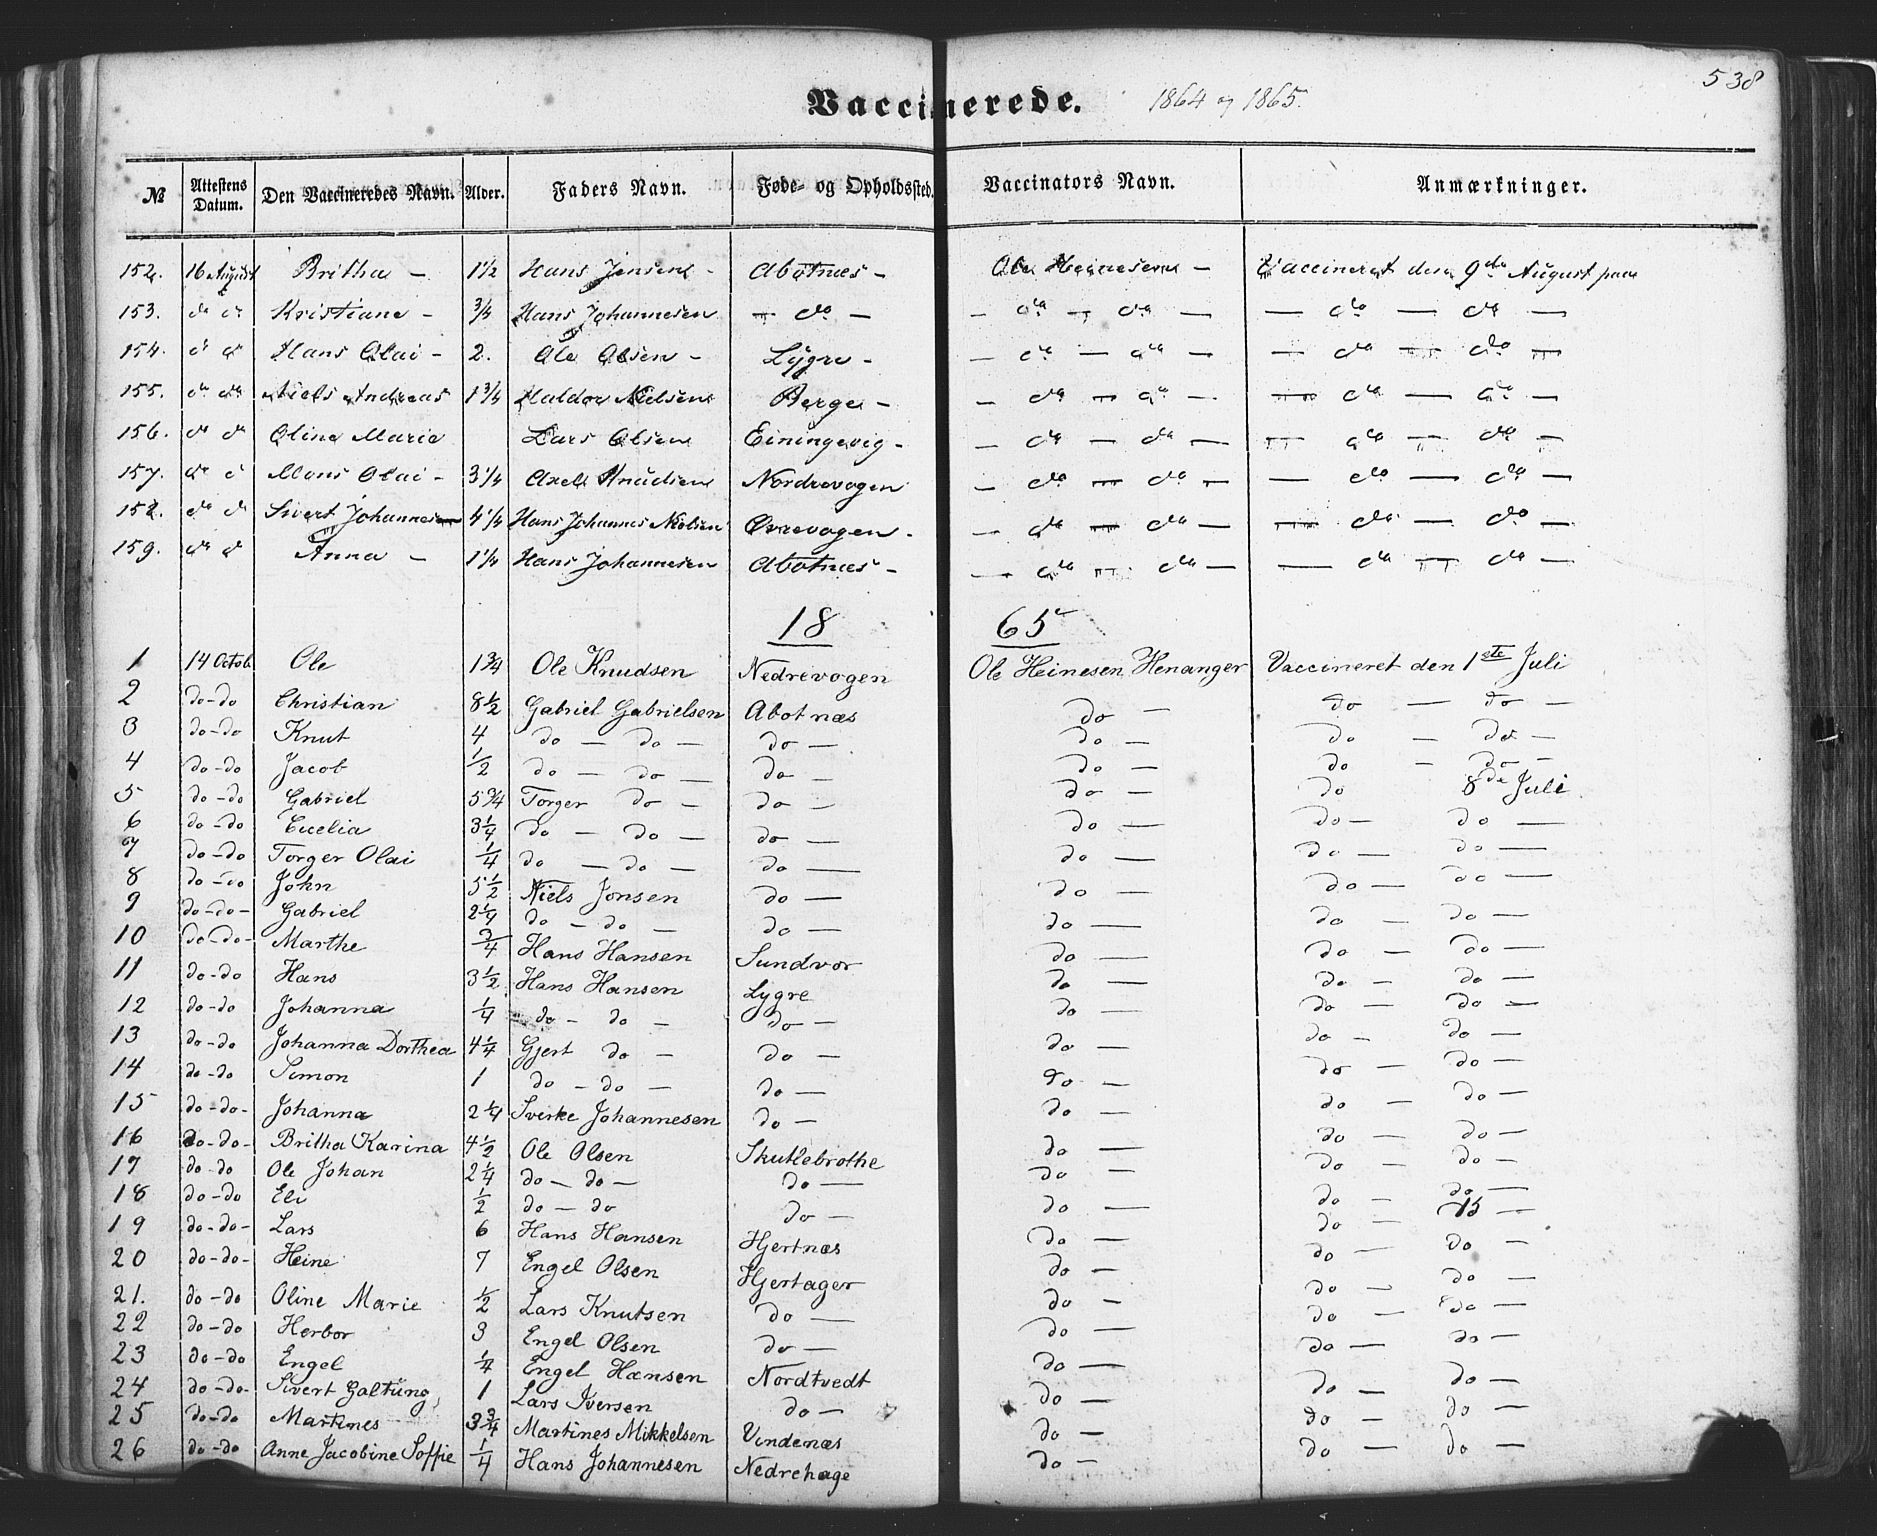 538
Vaccinerede. 1864 og 1865.
№ | Attestens Datum. | Den Vaccineredes Navn. | Alder. | Faders Navn. | Føde- og Opholdssted. | Vaccinators Navn. | Anmærkninger.
152. | 16 August | Britha - | 1 1/2 | Hans Jensen - | Abotnæs - | Ole Heinesen - | Vaccineret den 9de August
153. | do do | Kristiane - | 3/4 | Hans Johannesen | - do - | - do - do - | - do - do -
154. | do do | Hans Olai - | 2. | Ole Olsen - | Lygre - | - do - do - | - do - do -
155. | do do | Niels Andreas | 1 3/4 | Haldor Nielsen | Berge - | - do - do - | - do - do -
156. | do do | Oline Marie | | Lars Olsen | Einingevig - | - do - do - | - do - do -
157. | do do | Mons Olai - | 3 1/4 | Axel Knudsen | Nordrevogen | - do - do - | - do - do -
158. | do do | Sivert Johannesen | 4 1/4 | Hans Johannes Nielsen | Øvrevogen - | - do - do - | - do - do -
159. | do do | Anna - | 1 1/4 | Hans Johannesen | Abotnæs - | - do - do - | - do - do -
18 65
1 | 14 Octob. | Ole | 1 3/4 | Ole Knudsen | Nedrevogen | Ole Heinesen Henanger | Vaccineret den 1ste Juli
2 | do - do | Christian | 8 1/2 | Gabriel Gabrielsen | Abotnæs | do - | do - do -
3 | do - do | Knut | 4 | do - do - | do - | do - | do - do -
4 | do - do | Jacob | 1/2 | do - do - | do - | do - | do - do -
5 | do - do | Gabriel | 5 3/4 | Torger do - | do - | do - | do 8de Juli
6 | do - do | Eucelia | 3 1/4 | do - do - | do - | do - | do - do -
7 | do - do | Torger Olai | 1/4 | do - do - | do - | do - | do - do -
8 | do - do | John | 5 1/2 | Niels Jonsen | do - | do - | do - do -
9 | do - do - | Gabriel | 2 1/4 | do - do - | do - | do - | do - do -
10 | do - do - | Marthe | 3/4 | Hans Hansen | Sundvor | do - | do - do -
11 | do - do | Hans | 3 1/2 | Hans Hansen | Lygre | do - | do - do -
12 | do - do | Johanna | 1/4 | do - do - | do - | do - | do - do -
13 | do - do | Johanna Dorthea | 4 1/4 | Gjert do - | do - | do - | do - do -
14 | do - do | Simon | 1 | do - do - | do - | do - | do - do -
15 | do - do - | Johanna | 2 1/4 | Sverke Johannesen | do - | do - | do - do -
16 | do - do - | Britha Karina | 4 1/2 | Ole Olsen | Skutlebrothe | do - | do - do -
17 | do - do | Ole Johan | 2 1/4 | do - do - | do - | do - | do - do -
18 | do - do | Eli | 1/2 | do - do | do - | do - | do - do -
19 | do - do - | Lars | 6 | Hans Hansen | Hjertnæs | do - | do - 15 -
20 | do - do - | Heine | 7 | Engel Olsen | Hjertager | do - | do - do -
21. | do - do | Oline Marie | 1/2 | Lars Knutsen | do - | do - | do - do -
22 | do - do | Herbor | 3 | Engel Olsen | do - | do - | do - do -
23 | do - do | Engel | 1/4 | Engel Hansen | Nordtvedt | do - | do - do -
24 | do - do - | Sivert Galtung, | 1 | Lars Iversen | do - | do - | do - do -
25 | do - do | Martines | 3 3/4 | Martines Mikkelsen | Vindenæs | do - | do - do -
26 | do - do | Anne Jacobine Soffie | 1/4 | Hans Johannesen | Nedrehage | do - | do - do -